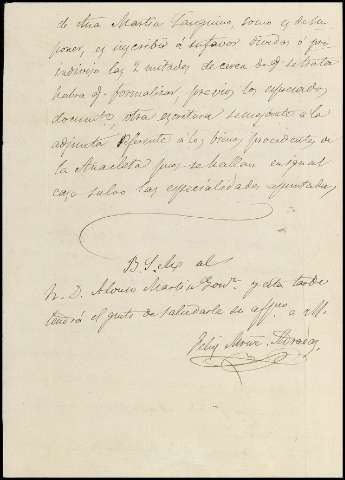 de Ana Martin Vaquero, como es de su
poner, e inscribir á su favor
indiviso las 2 mitades de cerca de q. se trata
habra q. formalizar, previos los expresados
documtos, otra escritura semejante á la
adjunta referente á los bienes procedentes de
la Anacleta pues se hallan en igual
caso salvo las especialidades apuntadas,
B. S. M. al
S. D. Alonso Martin y esta tarde
tendrá el gusto de saludarle su affmo. a. M.
Felix